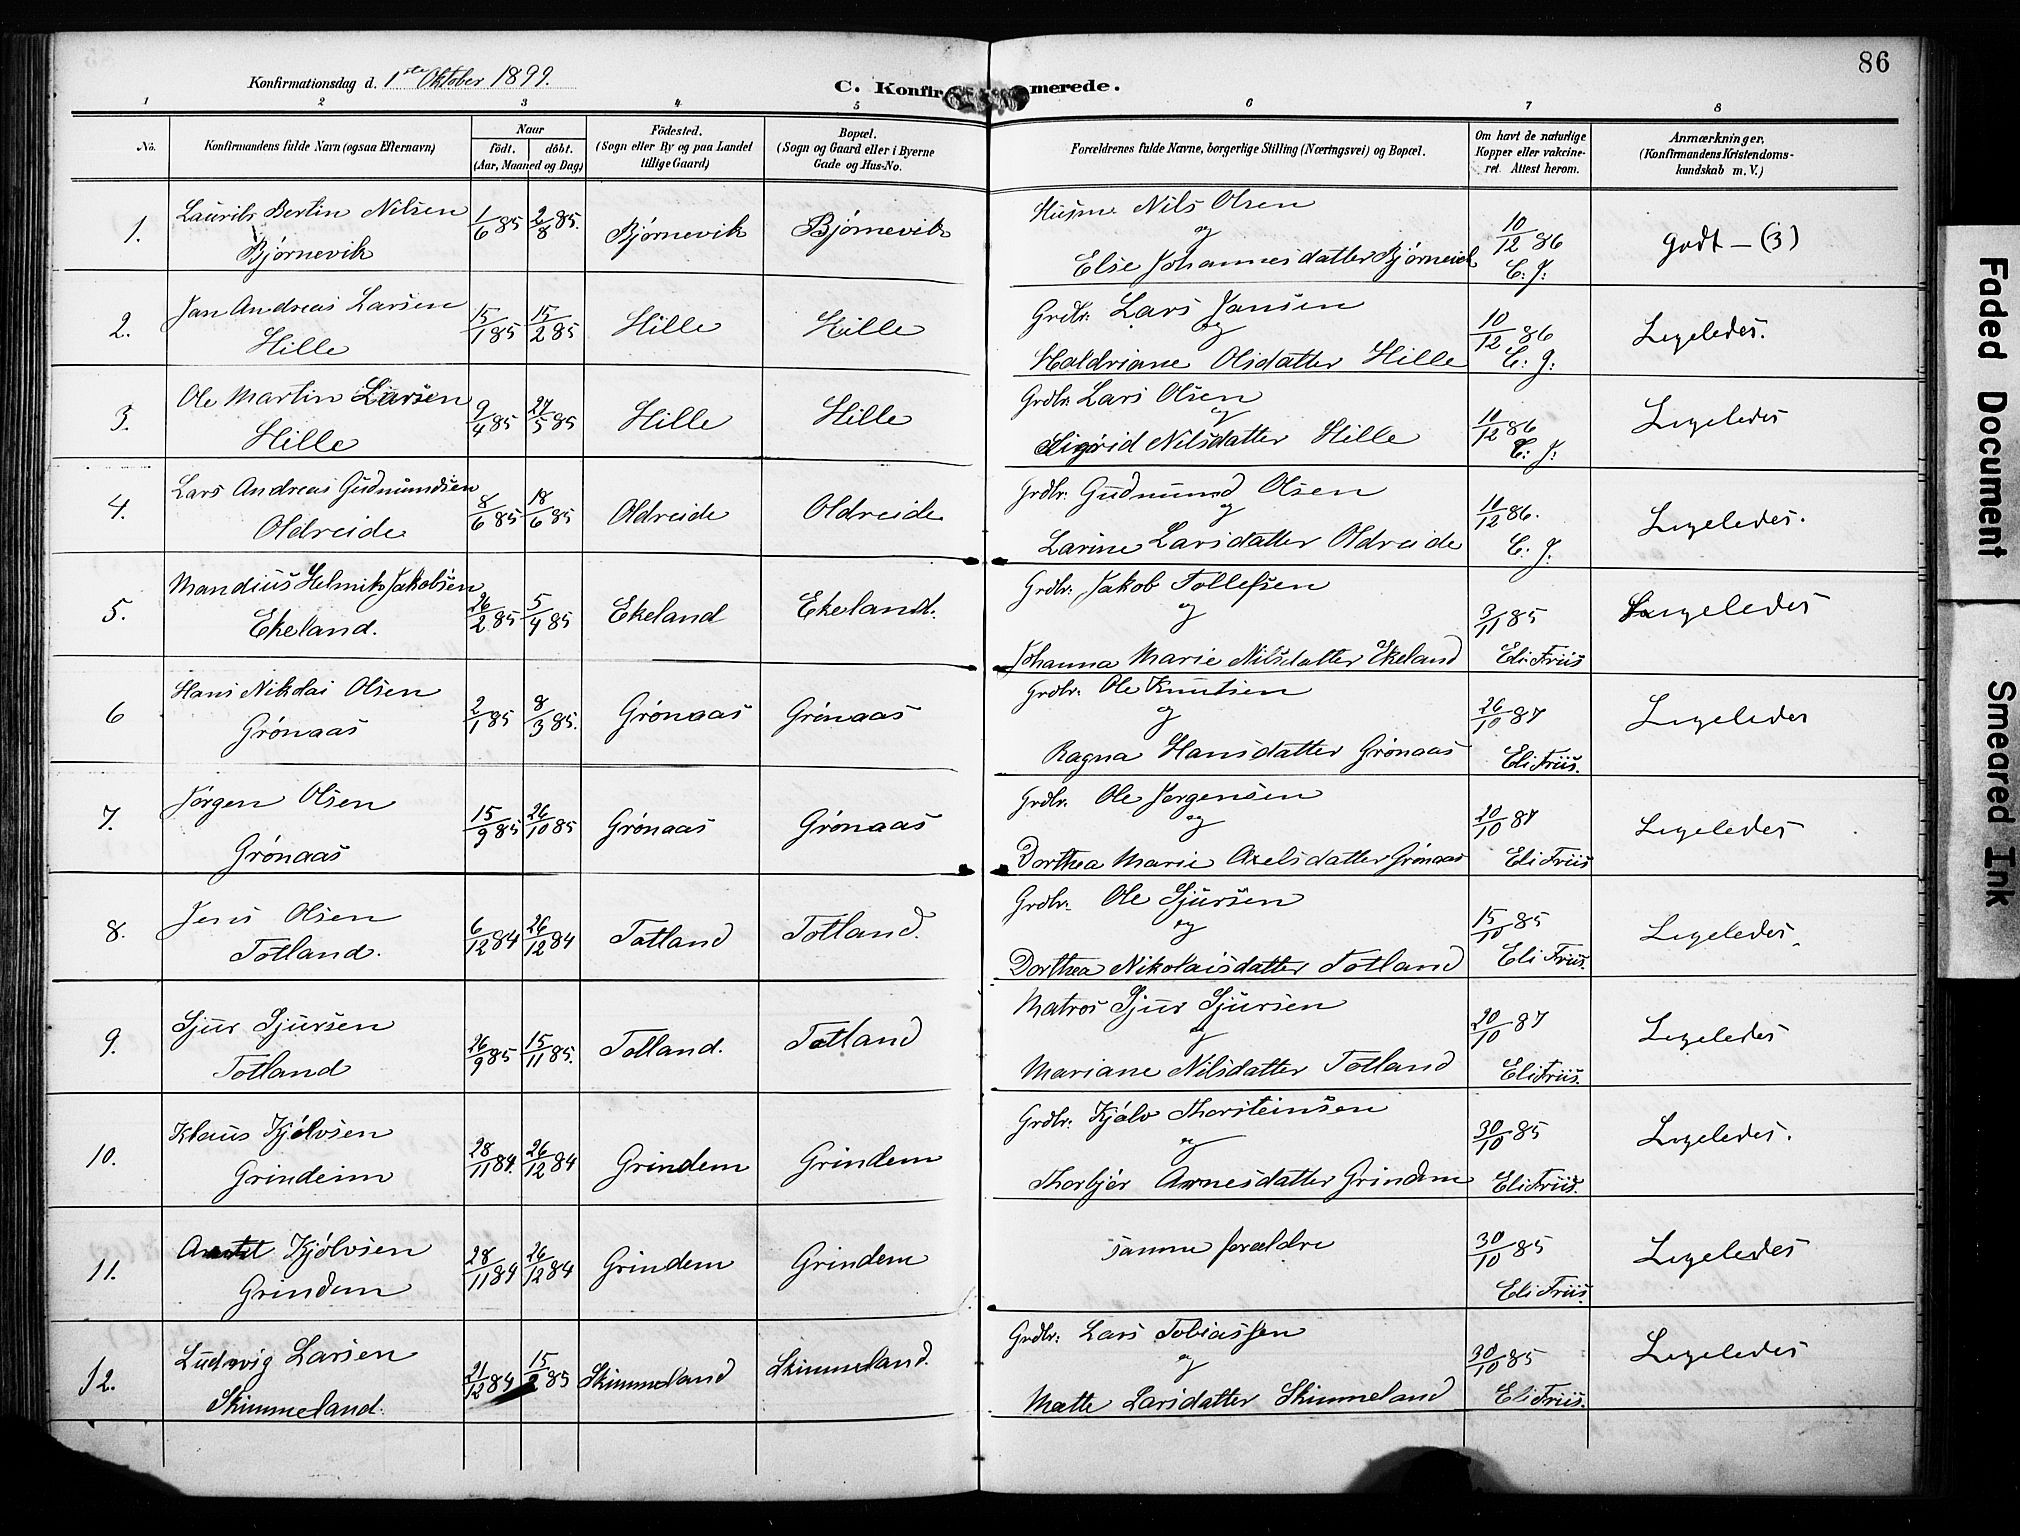 86
Konfirmationsdag d. 1ste Oktober 1899.
C. Konfirmerede.
1 2 3 4 5 6 7 8
No. Konfirmandens fulde Navn (ogsaa Efternavn) Naar født. døbt. (Aar, Maaned og Dag) Födested. (Sogn eller By og paa Landet tillige Gaard) Bopæl. (Sogn og Gaard eller i Byerne Gade og Hus-No. Forældrenes fulde Navne, borgerlige Stilling (Næringsvei) og Bopæl. Om havt de naturlige Kopper eller vakcineret Attest herom. Anmærkninger, (Konfirmandens Kristendomskundskab m. V.)
1. Laurits Bertin Nilsen Bjørnevik 1/6 85 2/8 85. Bjørnevik Bjørnevik Husm. Nils Olsen og Else Johannesdatter Bjørnevik 10/12 86 C: J: Godt – (3)
2. Jan Andreas Larsen Hille 15/1 85 15/2 85 Hille Hille Grdbr: Lars Jansen og Haldriane Olsdatter Hille 10/12 86 C: J: Ligeledes.
3. Ole Martin Larsen Hille 9/4 85 27/5 85 Hille Hille Grdbr. Lars Olsen og Sigrid Nilsdatter Hille 11/12 86 C: J: Ligeledes
4. Lars Andreas Gudmundsen Oldreide 8/6 85 18/6 85 Oldreide Oldreide Grdbr. Gudmund Olsen og Larine Larsdatter Oldreide 11/12 86. C: J: Ligeledes.
5. Mandius Helmik Jakobsen Ekeland. 26/2 85 5/4 85 Ekeland Ekeland. Grdbr: Jakob Tollefsen og Johanna Marie Nilsdatter Ekeland 3/11 85 Eli Friis Ligeledes
6 Hans Nikolai Olsen Grønaas 2/1 85 8/3 85. Grønaas Grønaas Grdbr. Ole Knutsen og Ragna Hansdatter Grønaas 26/10 87 Eli Friis. Ligeledes
7. Jørgen Olsen Grønaas 15/9 85 26/10 85 Grønaas Grønaas Grdbr. Ole Jørgensen og Dorthea Marie Axelsdatter Grønaas 20/10 87 Eli Friis Ligeledes
8. Jens Olsen Totland. 6/12 84 26/12 84 Totland Totland. Grdbr. Ole Sjursen og Dorthea Nikolaisdatter Totland 15/10 85 Eli Friis. Ligeledes.
9. Sjur Sjursen Totland 26/9 85 15/11 85. Totland. Totland Matros Sjur Sjursen og Mariane Nilsdatter Totland 20/10 87 Eli Friis. Ligeledes
10. Klaus Kjølvsen Grindeim 28/11 84. 26/12 84 Grindem Grindem Grdbr: Kjølv Thorsteinsen og Thorbjør Arnesdatter Grindem 30/10 85 Eli Friis. Ligeledes.
11. Kjølvsen Grindem 28/11 84 26/12 84 Grindem Grindem samme forældre 30/10 85 Eli Friis. Ligeledes
12. Ludvig Larsen Skimmeland. 21/12 84 15/2 85 Skimmeland Skimmeland. Grdbr: Lars Tobiassen og Mette Larsdatter Skimmeland 30/10 85 Eli Friis. Ligeledes
Faded Document
Smeared Ink